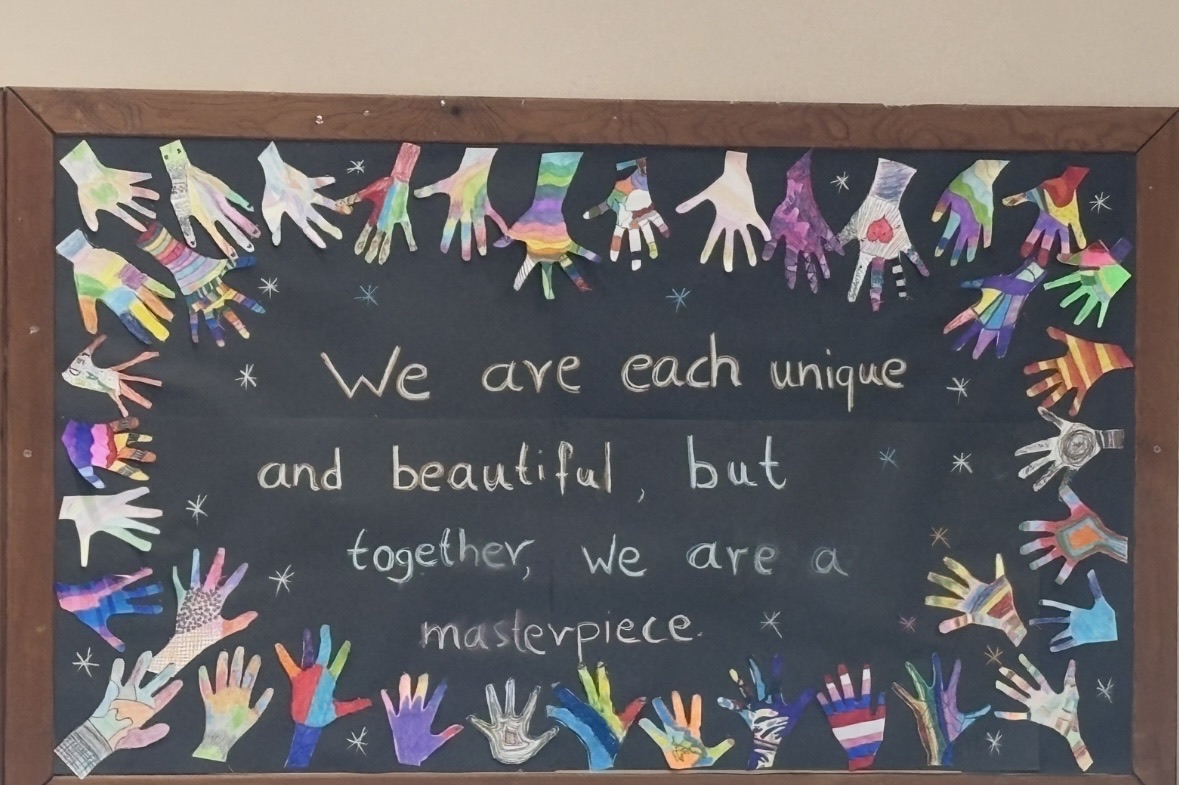 We are each unique
and beautiful, but
together, we are a
masterpiece.